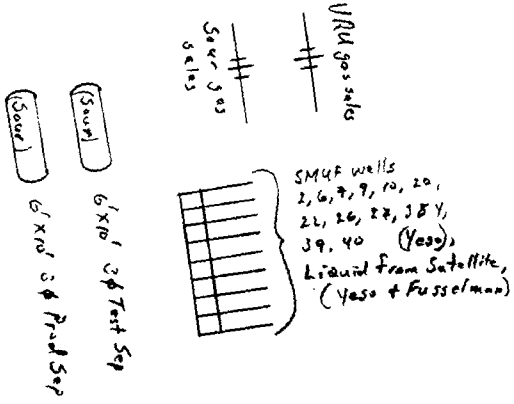 VRU gas sales
Sour gas
sales
(Sour)
(Sour)
6'x10' 3ϕ Test Sep
6'x10' 3ϕ Prod Sep
SMUF wells
2, 6, 7, 9, 10, 20,
22, 26, 27,
39, 40 (Yeso),
Liquid from Satellite,
(Yeso + Fusselman)